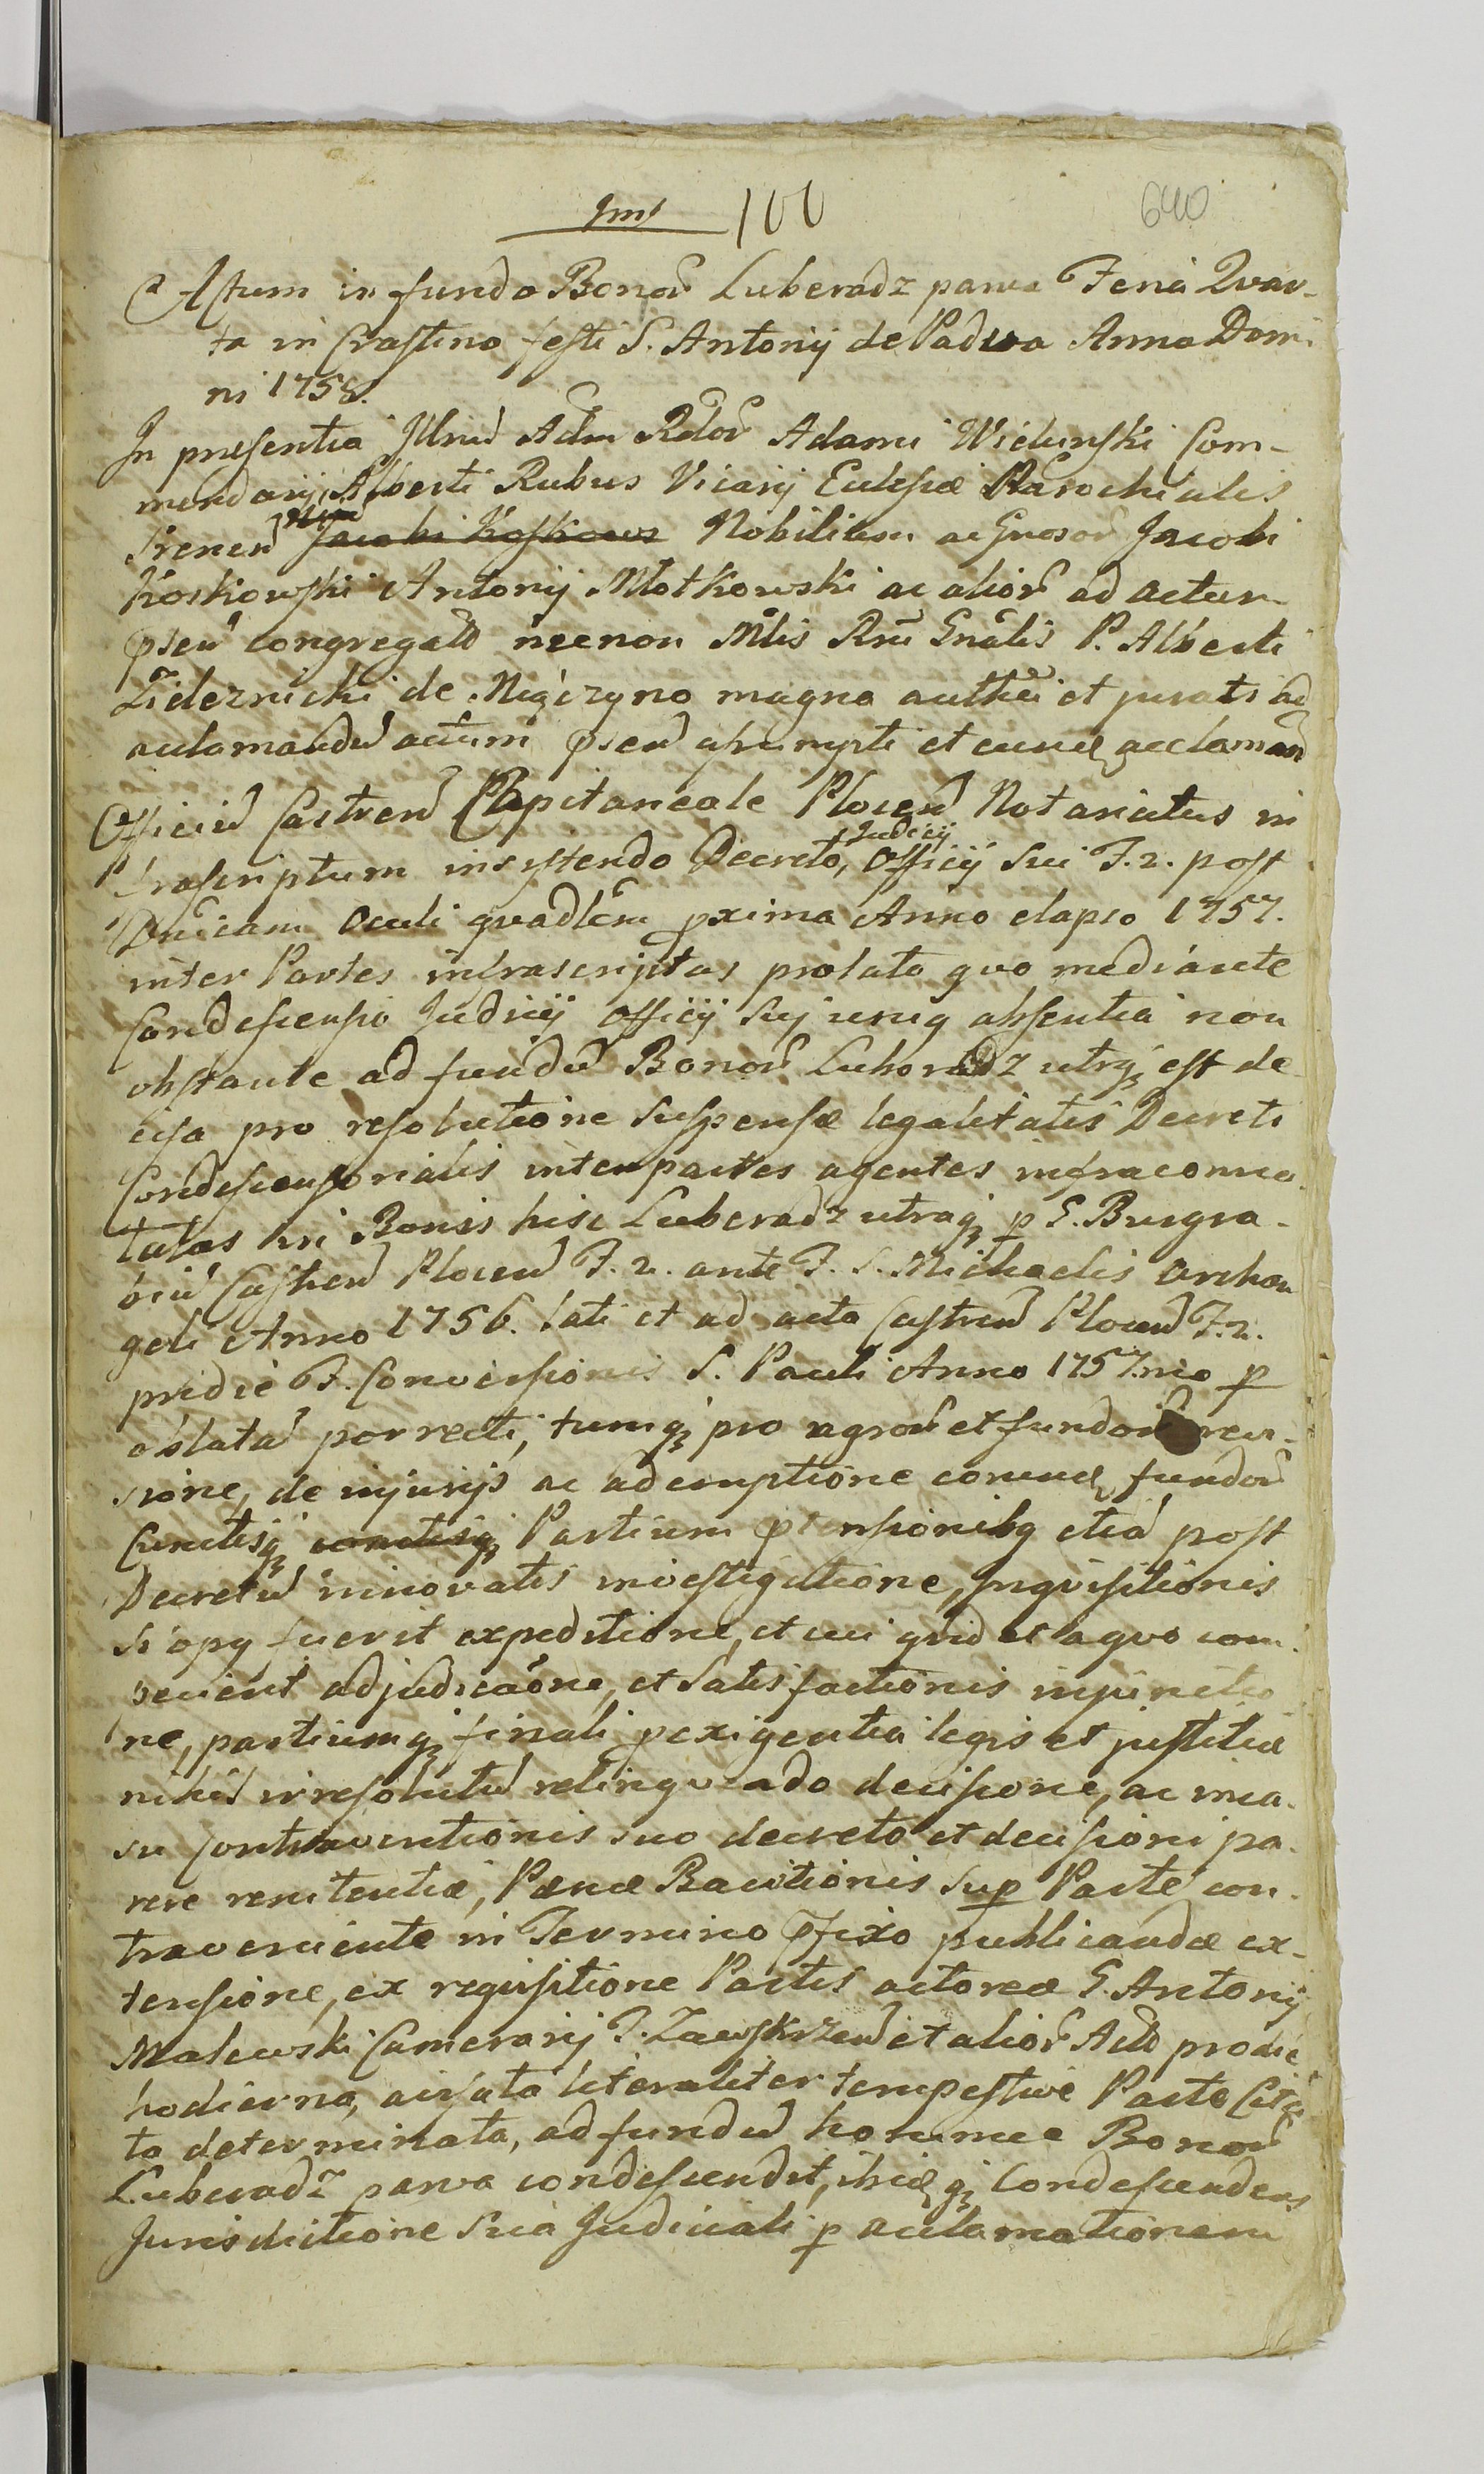 Jms 100 640
Actum in fundo Bonor Luberadz parva Feria Qvar-
ta in Crastino festi S. Antonij de Padva Anno Domi
ni 1758.
In presentia Illriũ Adm Rdor Adami Widunski Com-
mendarij, Alberti Rubus Vicarij Eclesiæ Parochialis
Srenen Jacobi Koskows Nobilium ac Gnosor Jacobi
Koskowski Antonij Młotkowski ac alior ad actum
pñen congregato necnon Mlis Rni Gnalis P. Alberti
Zideznicki de Nięczyno magna authei et jurati ad
aclamandũ actum pñen assumpti et eund acclaman
Officiũ Castren Capitaneale Plocen Notariatus in
frascriptum insystendo Decreto, Judicij Officij Sui F. 2. post
Dnicam Oculi qvadlem pxima Anno elapso 1757.
inter Partes infrascriptas prolato quo mediante
Condescensio Judicij Officij Suj uniq absentia non
obstante ad fundũ Bonor Luboradz utrq est de
cisa pro resolutione Suspensæ legalitatis Decreti
Condescensorialis inter partes agentes infraconno
tatas in Bonis hisc Luberadz utraq p G. Burgra-
biũ Castren Plocen F. 2. ante F. S. Michaelis Archan
geli Anno 1756. lati et ad acta Castren Plocen F. 2.
pridie F. Conversionis S. Pauli Anno 1757.mo p
oblatã porrecti, tumq pro agror et fundor revi-
sione, de injurijs ac ademptione eorund fundor
Cunctisq cunctisq Partium ptensionibq etiã post
Decretũ innovatis investigatione, Inqvisitionis
si opq fuerit expeditione, et cui qvid et a qvo com-
pecient adjudicaõne, et Satisfactionis injunctio
ne, partiumq finali p exigentia legis et justitiæ
nihil irresolutũ relinqvendo decisione, ac in ca-
su Contraventionis suo decreto et decisioni pa-
rere renitentiæ, Pænæ Bannitionis sup Parte con-
traveniente in Termino pfixo publicandæ ex-
tensione, ex reqvisitione Partis actoreæ G. Antonij
Malewski Camerarij T. Zawskrzen et alior Acto pro die
hodierna, avisata literaliter tempestive Parte Cita
ta determinata, ad fundũ horumce Bonor
Luberadz parva condescendit, ibidq Condescendens
Jurisdictione Sua Judiciali p acclamationem